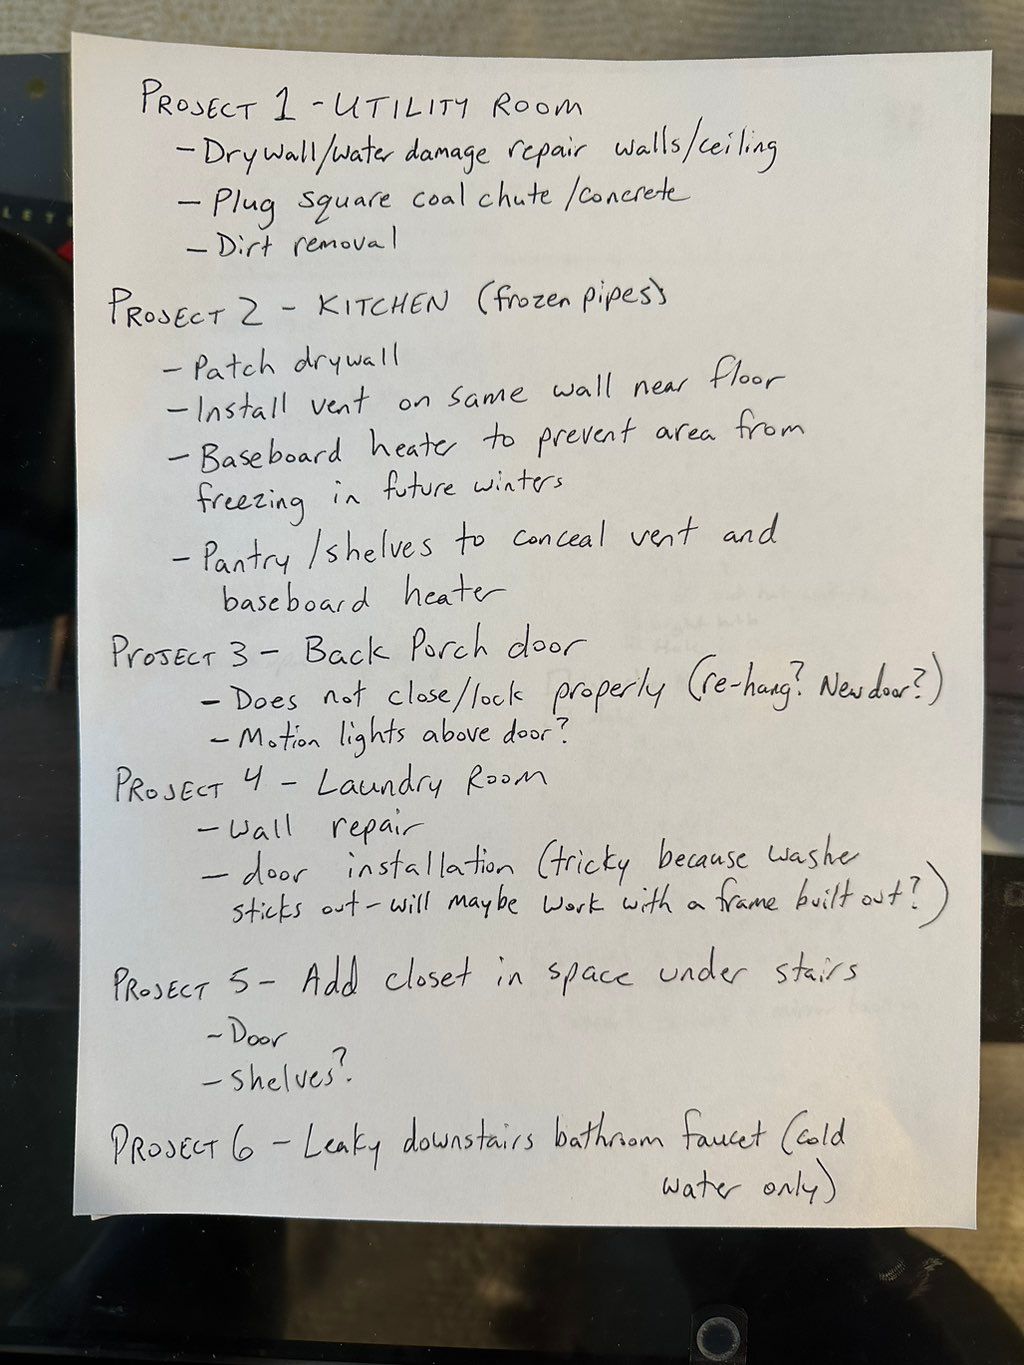 PROJECT 1 - UTILITY ROOM
- Drywall/water damage repair walls/ceiling
- Plug square coal chute/concrete
- Dirt removal
PROJECT 2 - KITCHEN (frozen pipes)
- Patch drywall
- Install vent on same wall near floor
- Baseboard heater to prevent area from
freezing in future winters
- Pantry/shelves to conceal vent and
baseboard heater
PROJECT 3 - Back Porch door
- Does not close/lock properly (re-hang? New door?)
- Motion lights above door?
PROJECT 4 - Laundry Room
- Wall repair
- door installation (tricky because washer
sticks out - will maybe work with a frame built out?)
PROJECT 5 - Add closet in space under stairs
- Door
- Shelves?
PROJECT 6 - Leaky downstairs bathroom faucet (cold
water only)